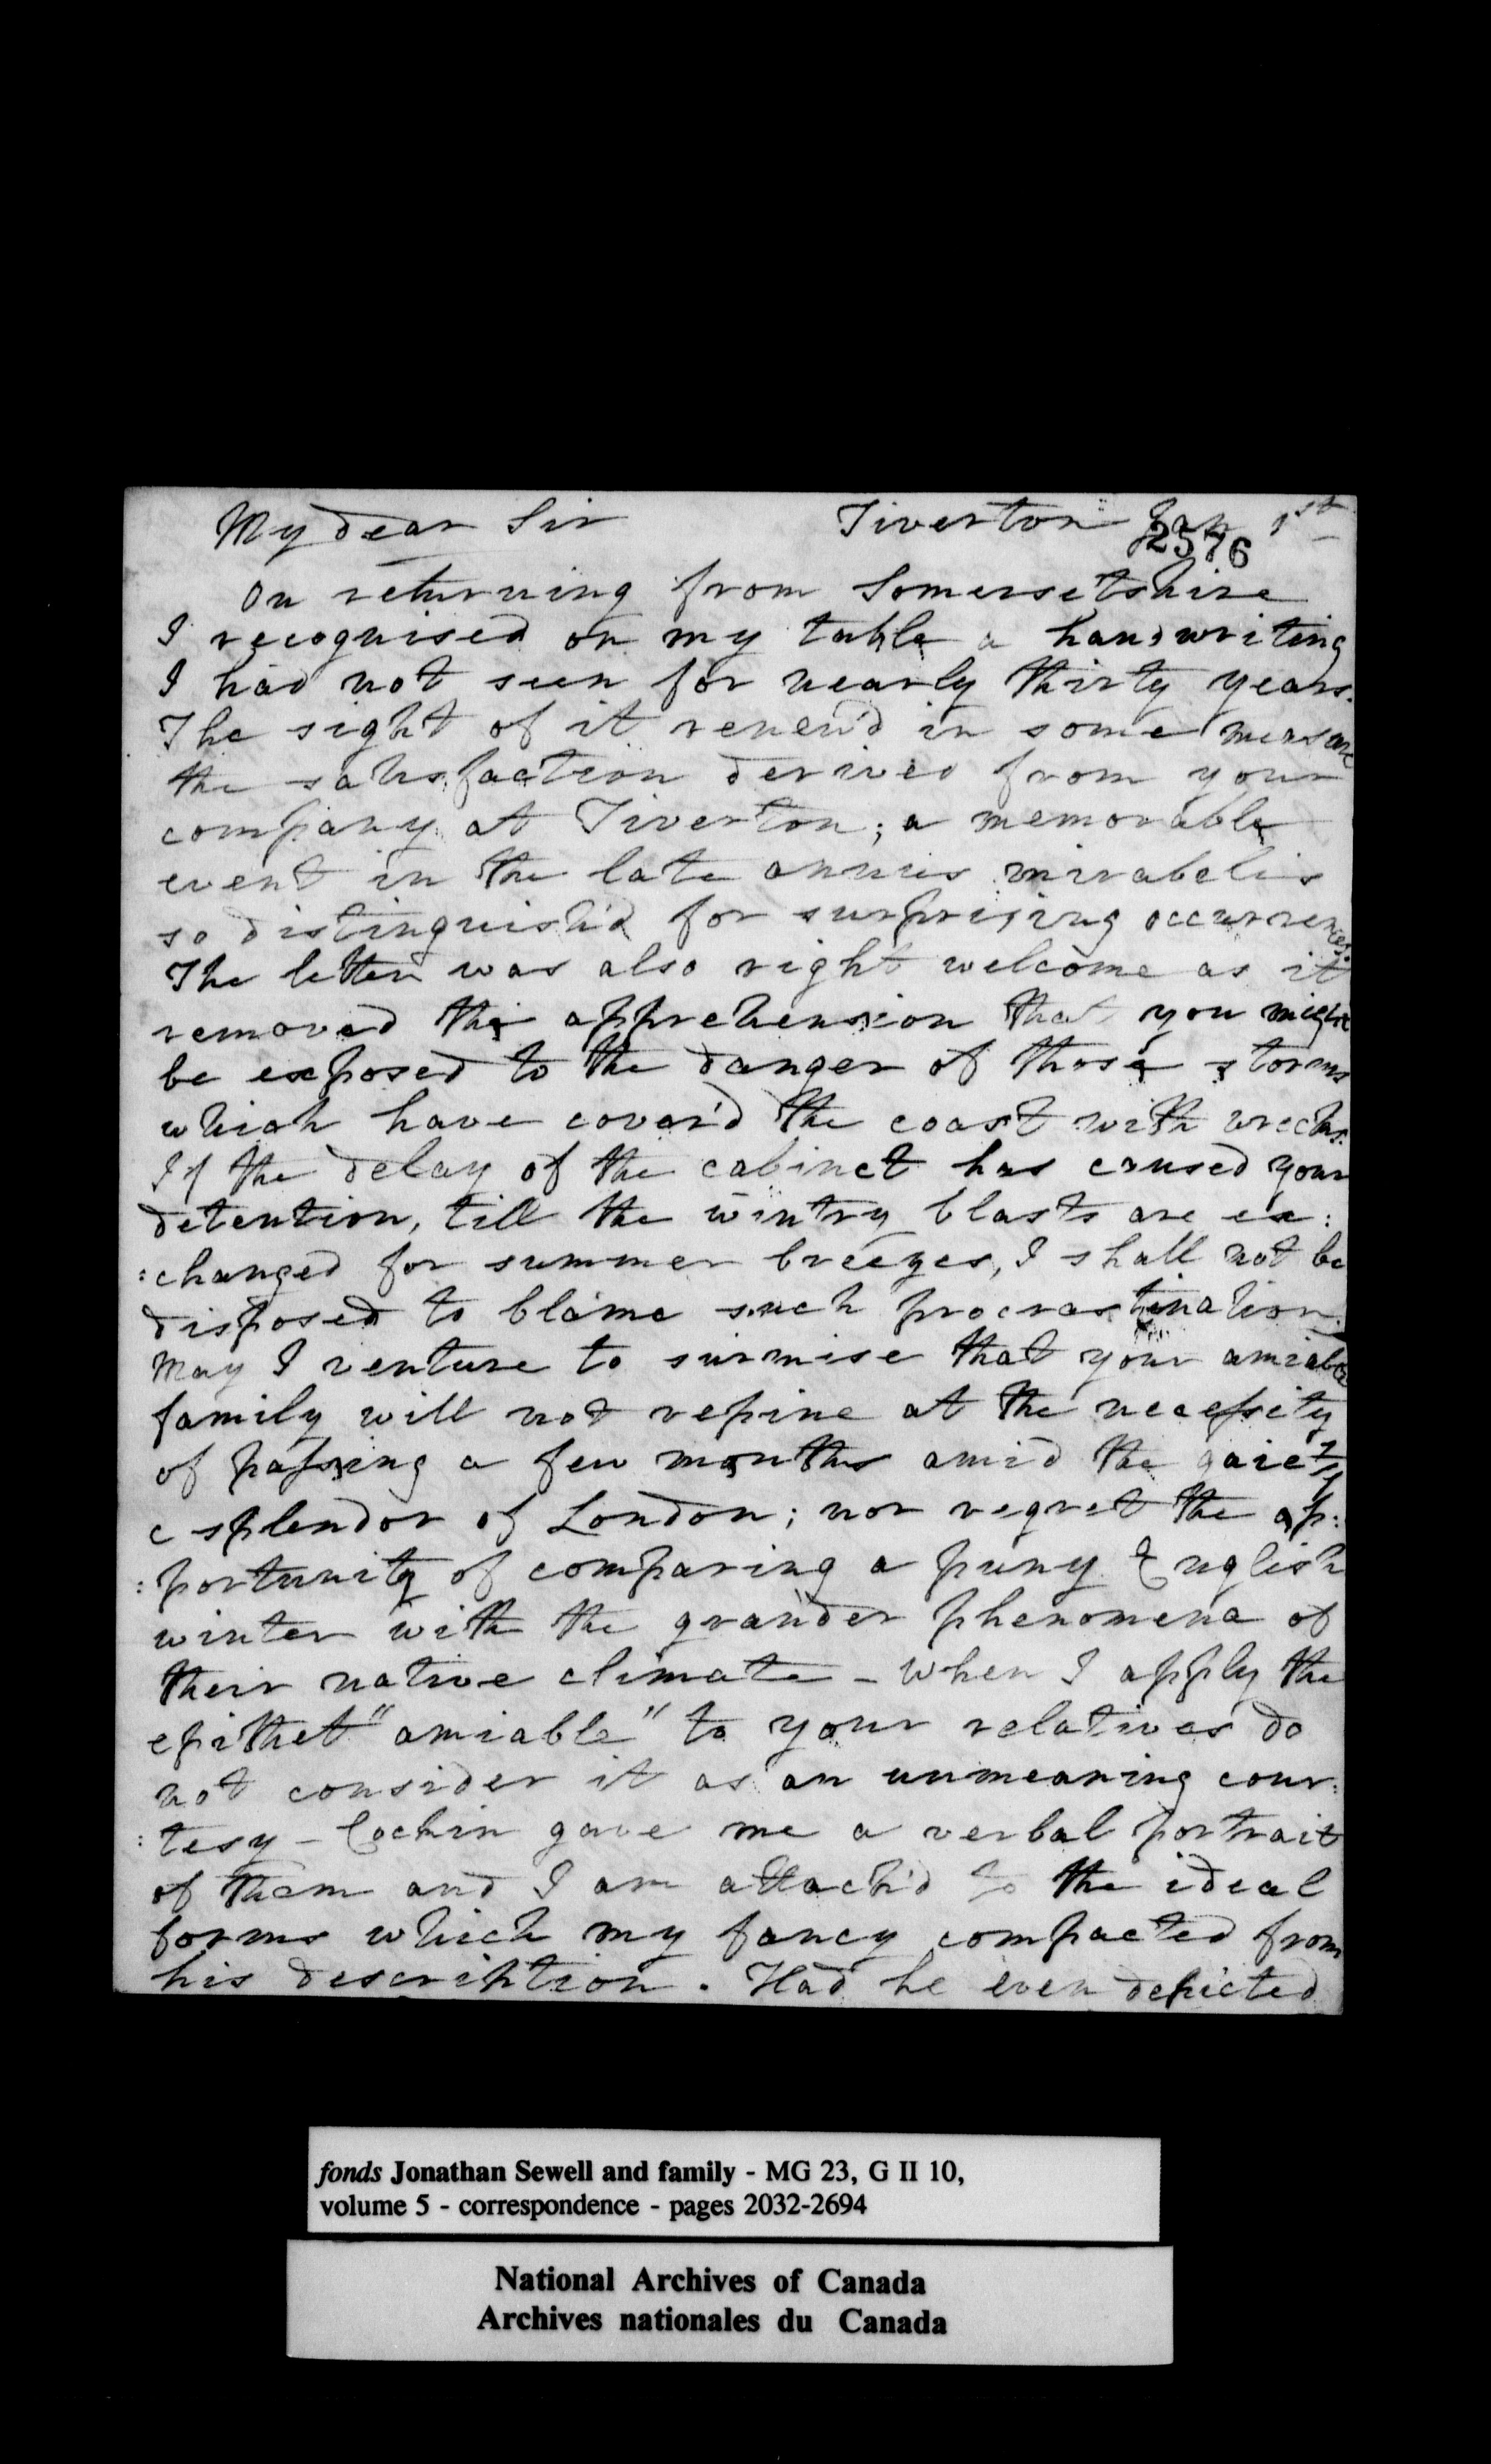 My dear Sir Tiverton Jan 1st
2576
On returning from Somersetshire
I recognised on my table a handwriting
I had not seen for nearly thirty years.
The sight of it renew'd in some measure
the satisfaction derived from your
company at Tiverton; a memorable
event in the late annus mirabelis
so distinguish'd for surprising occurrences.
The letter was also right welcome as it
removed the apprehension that you might
be exposed to the danger of those storms
which have cover'd the coast with wrecks.
If the delay of the cabinet has caused your
detention, till the wintry blasts are ex:
:changed for summer breezes, I shall not be
disposed to blame such procrastination.
May I venture to surmise that your amiable
family will not repine at the necessity
of passing a few months amid the gaiety
& splendor of London; nor regret the op:
:portunity of comparing a puny English
winter with the grander phenomena of
their native climate - When I apply the
epithet "amiable" to your relatives do
not consider it as an unmeaning cour:
:tesy - Cockin gave me a verbal portrait
of them and I am attach'd to the ideal
forms which my fancy compacted from
his description. Had he even depicted
fonds Jonathan Sewell and family - MG 23, G II 10,
volume 5 - correspondence - pages 2032-2694
National Archives of Canada
Archives nationales du Canada